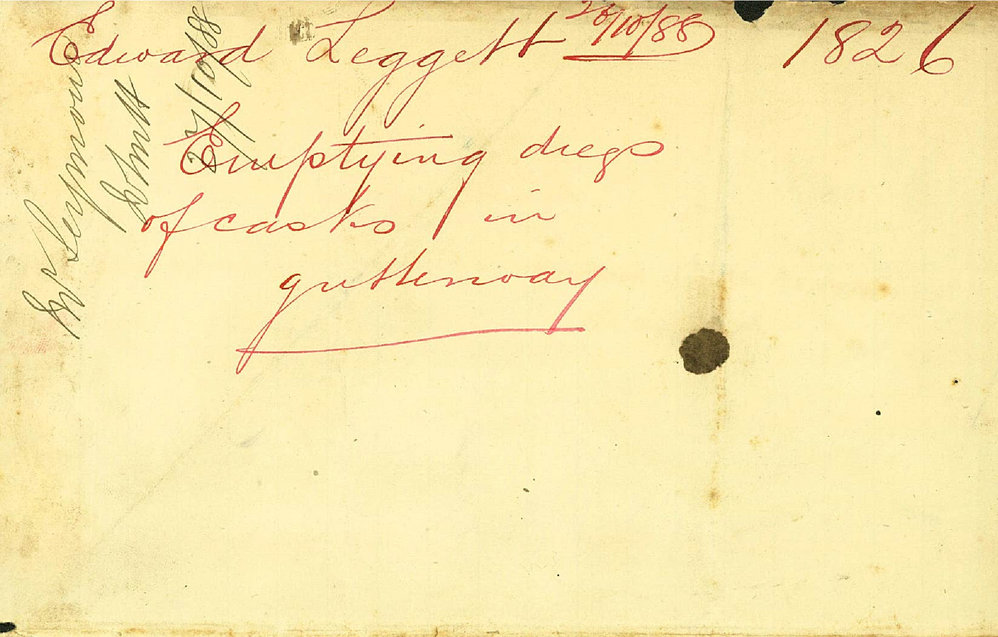 Edward Leggett 26/10/88 1826
Emptying dregs
of casks in
gutterway
Mr Seymour
27/10/88